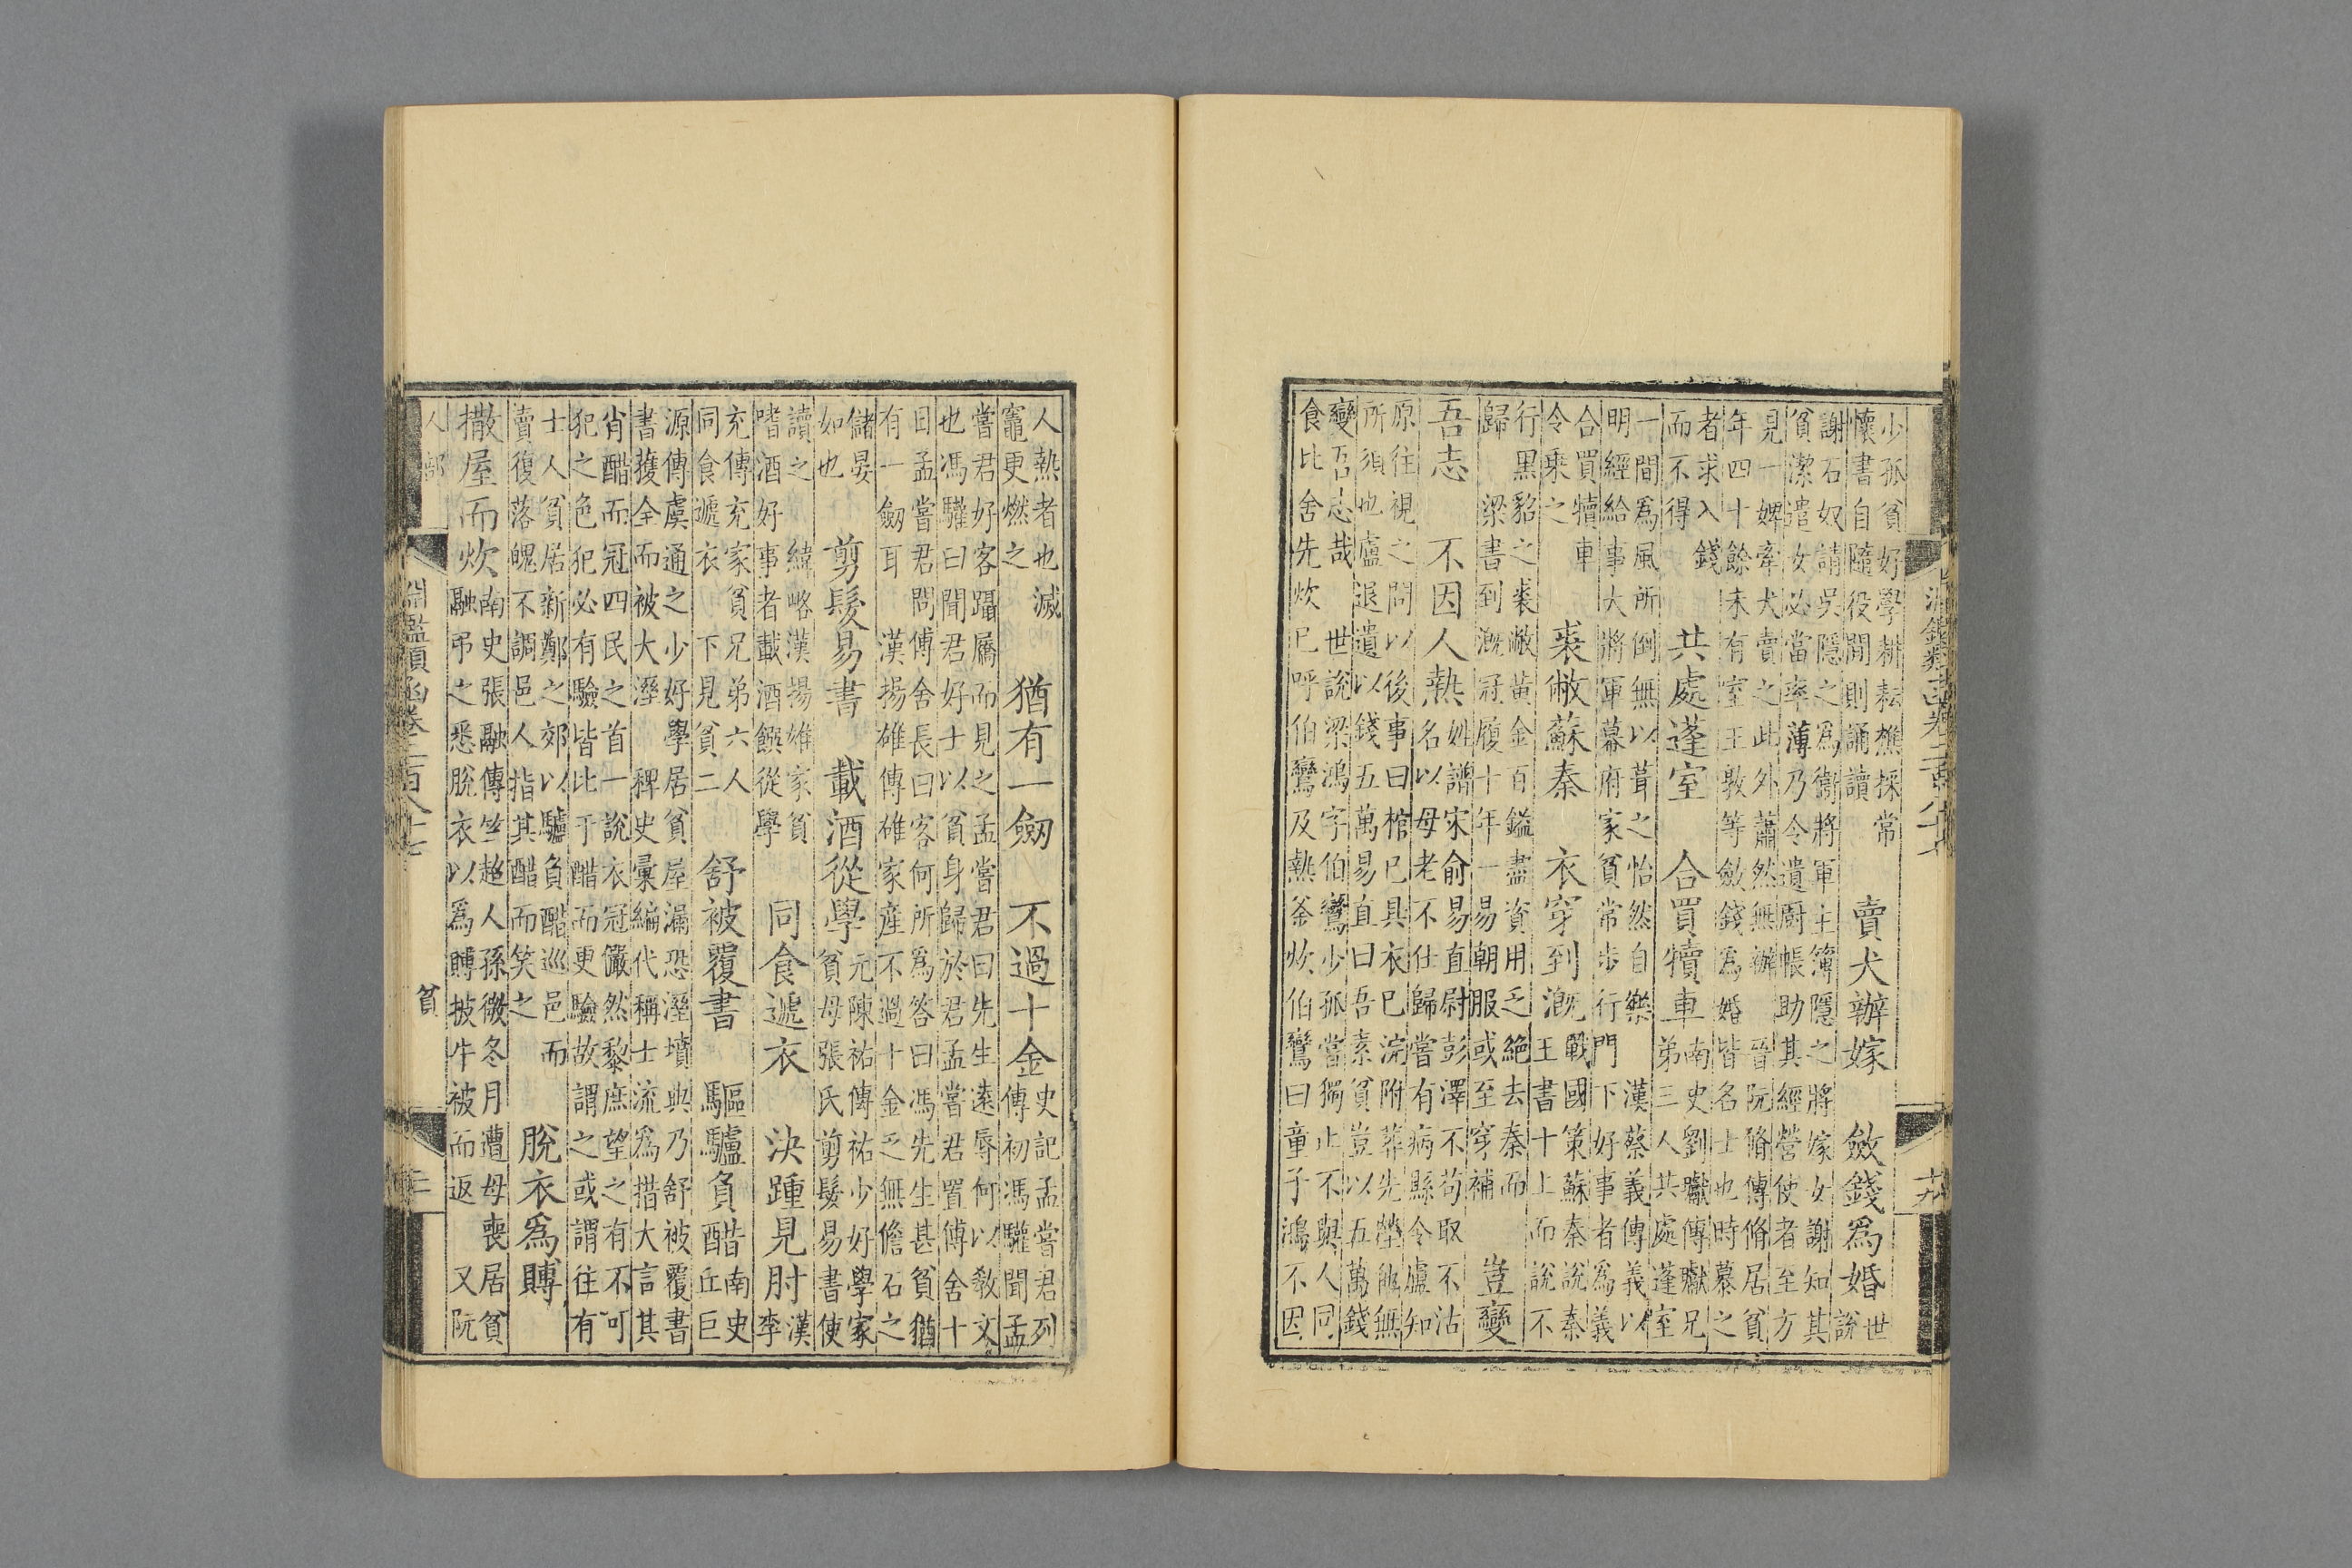 少孤貧好學耕耘樵採常
懷書自隨役閒則誦讀
賣犬辦嫁　斂錢爲婚
世
說
謝石奴請吳隱之爲衞將軍主簿隱之將嫁女謝知其
貧潔遣女必當率薄乃令遺廚帳助其經營使者至方
見一婢牽犬賣之此外蕭然無辦　晉阮脩傳脩居貧
年四十餘未有室王敦等斂錢爲婚皆名士也時慕之
者求入錢
而不得
共處蓬室　合買犢車
南史劉瓛傳瓛兄
弟三人共處蓬室
一間爲風所倒無以葺之怡然自樂　漢蔡義傳義以
明經給事大將軍幕府家貧常步行門下好事者爲義
合買犢車
令乘之
裘敝蘇秦　衣穿到溉
戰國策蘇秦說秦
王書十上而說不
行黑貂之裘敝黃金百鎰盡資用乏絕去秦而
歸　梁書到溉冠履十年一易朝服或至穿補
豈變
吾志　不因人熱
姓譜宋俞易直尉彭澤不苟取不沽
名以母老不仕歸嘗有病縣令盧知
原往視之問以後事曰棺已具衣已浣附葬先塋能無
所須也盧退遺以錢五萬易直曰吾素貧豈以五萬錢
變吾志哉　世說梁鴻字伯鸞少孤嘗獨止不與人同
食比舍先炊已呼伯鸞及熱釜炊伯鸞曰童子鴻不因
人熱者也滅
竈更燃之
猶有一劒　不過十金
史記孟嘗君列
傳初馮驩聞孟
嘗君好客躡屩而見之孟嘗君曰先生遠辱何以教文
也馮驩曰聞君好士以貧身歸於君孟嘗君置傳舍十
日孟嘗君問傳舍長曰客何所爲答曰馮先生甚貧猶
有一劒耳　漢揚雄傳雄家產不過十金乏無儋石之
儲晏
如也
剪髮易書　載酒從學
元陳祐傳祐少好學家
貧母張氏剪髮易書使
讀之　緯略漢揚雄家貧
嗜酒好事者載酒饌從學
同食遞衣　決踵見肘
漢
李
充傳充家貧兄弟六人
同食遞衣　下見貧二
舒被覆書　驅驢負醋
南史
丘巨
源傳虞通之少好學居貧屋漏恐溼墳典乃舒被覆書
書獲全而被大溼　稗史彙編代稱士流爲措大言其
肖醋而冠四民之首一說衣冠儼然黎庶望之有不可
犯之色犯必有驗皆比于醋而更驗故謂之或謂往有
士人貧居新鄭之郊以驢負醋巡邑而
賣復落魄不調邑人指其醋而笑之
脫衣爲賻
撒屋而炊
南史張融傳竺超人孫微冬月遭母喪居貧
融弔之悉脫衣以爲賻披牛被而返　又阮
人部
淵鑑類函卷二百八十七
貧